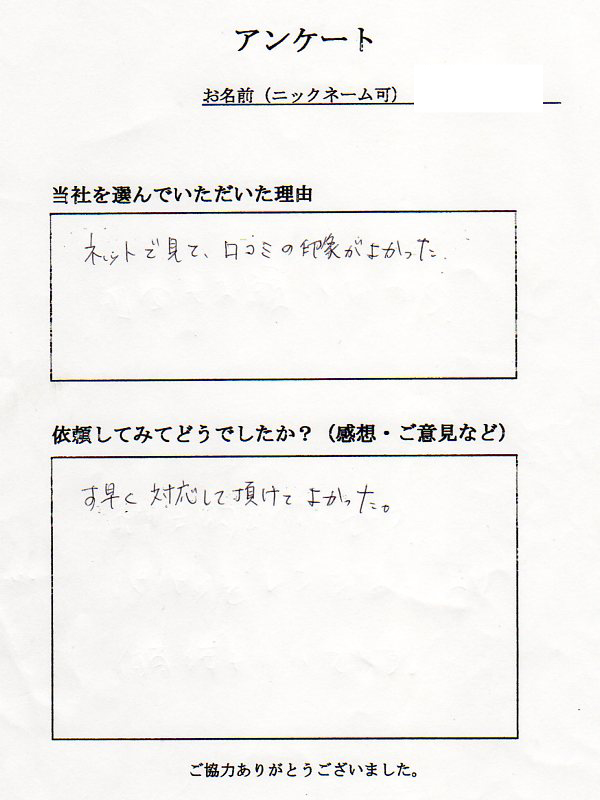 アンケート
お名前（ニックネーム可）
当社を選んでいただいた理由
ネットで見て、口コミの印象がよかった.
依頼してみてどうでしたか？（感想・ご意見など）
す早く対応して頂けてよかった。
ご協力ありがとうございました。